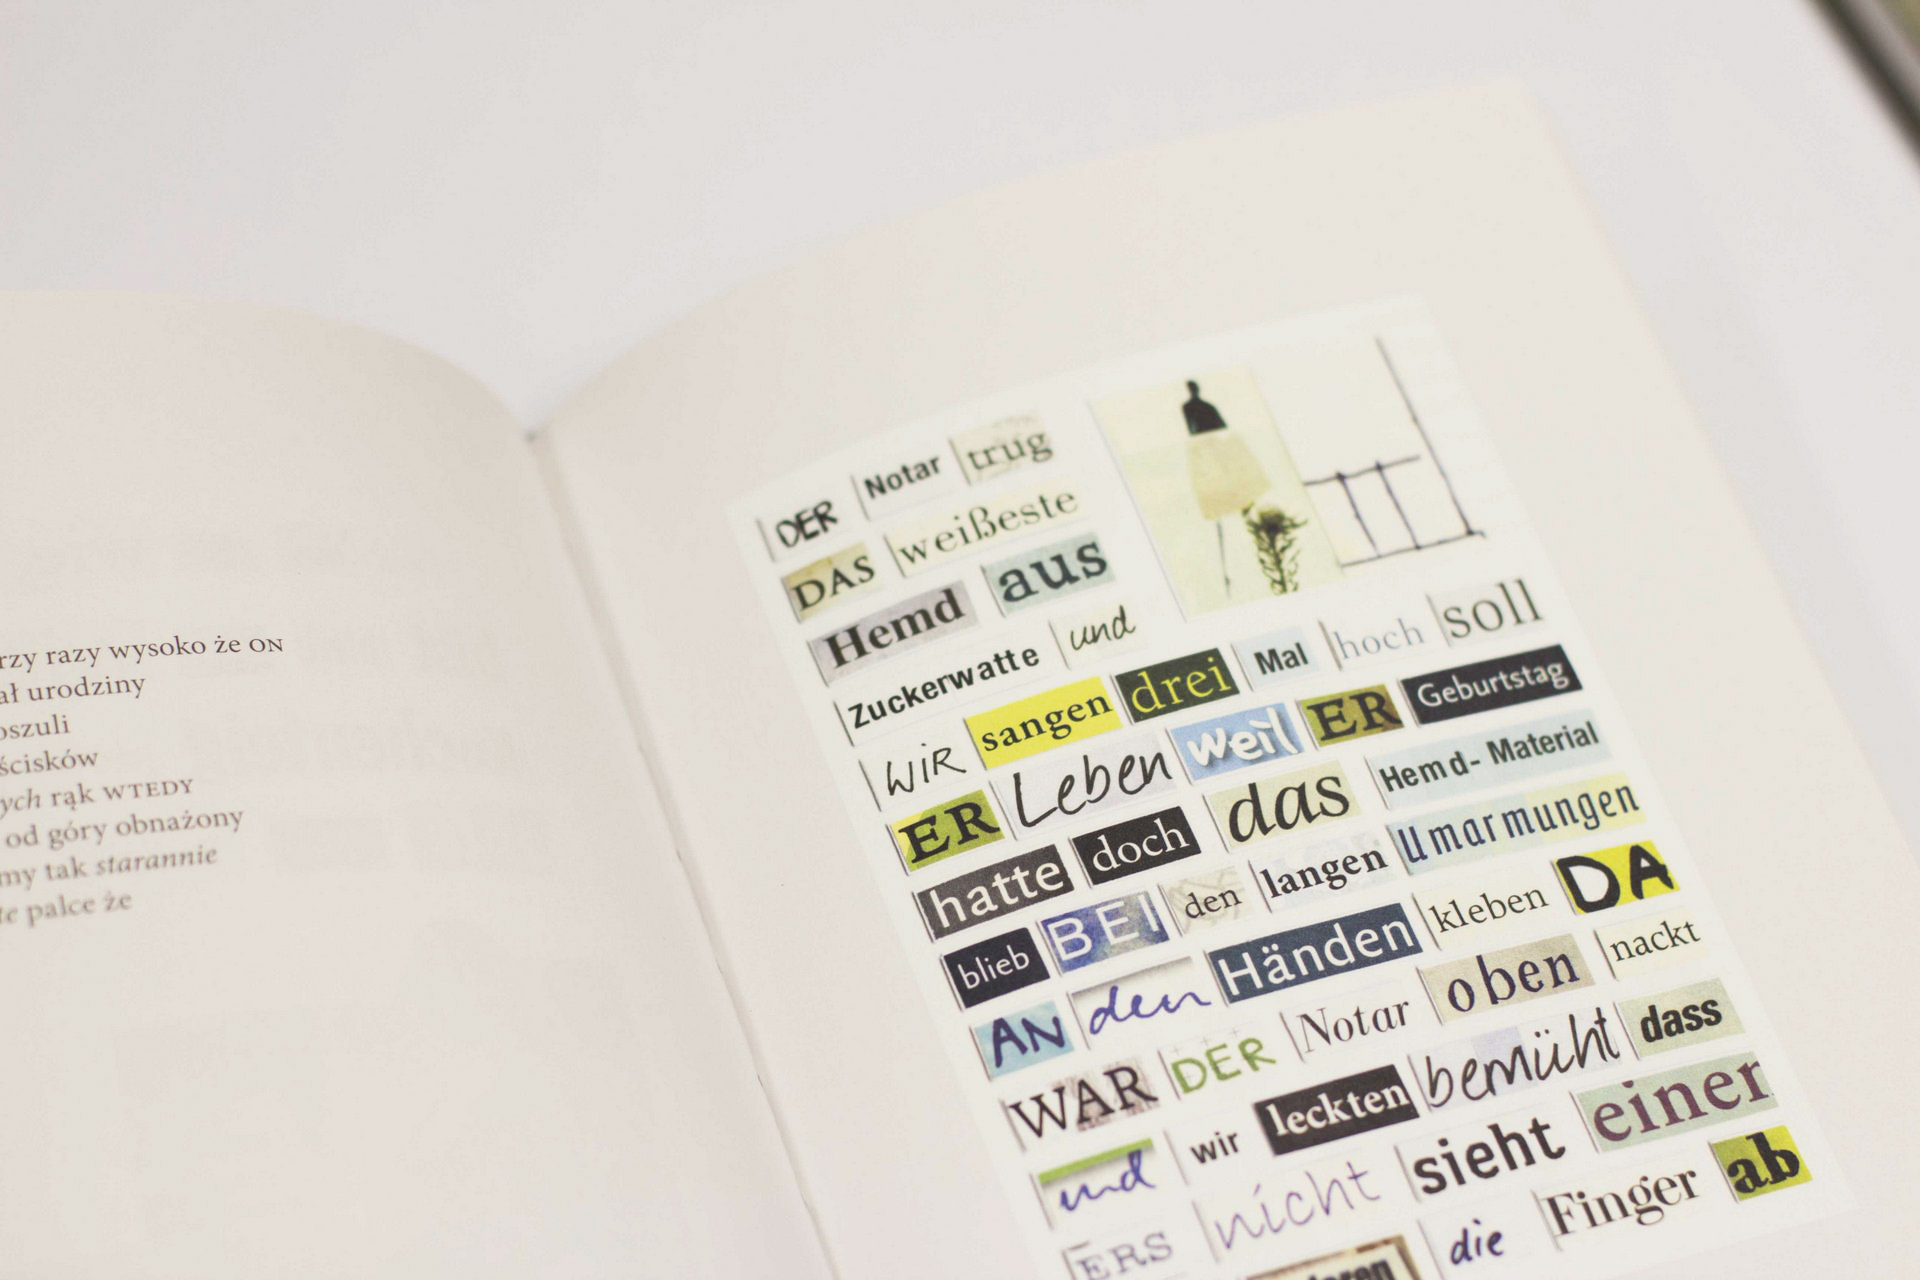 razy wysoko że ON
urodziny
rąk WTEDY
od góry obnażony
tak starannie
palce że
DER Notar trug
DAS weißeste
Hemd aus
Zuckerwatte und
WiR sangen drei Mal hoch soll
ER Leben weil ER Geburtstag
hatte doch das Hemd-Material
blieb BEI den langen Umarmungen
AN den Händen kleben DA
WAR DER Notar oben nackt
und wir leckten bemüht dass
ERS nicht sieht einer
die Finger ab